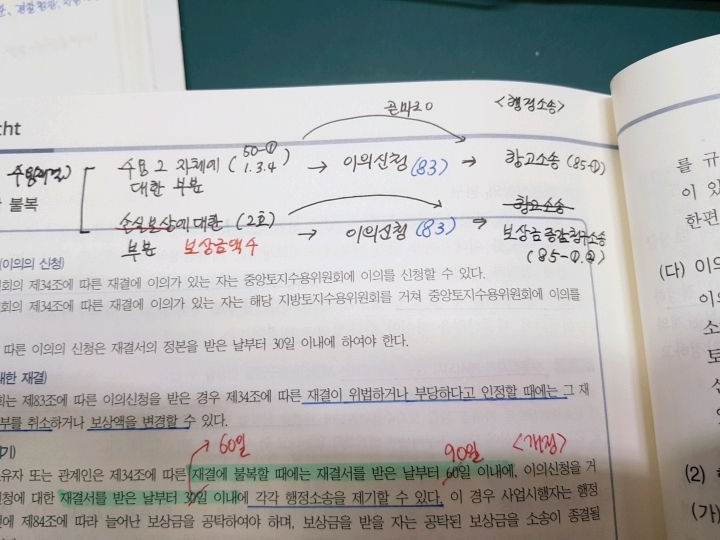 곧바로 O <행정소송>
cht
수용 그 자체에 (50-① 1.3.4) → 이의신청 (83) → 항고소송 (85-①)
수용재결)
대한 부분
불복
손실보상에 대한 (2호) → 이의신청 (83) → 항고소송
부분 보상금액수 보상금증감청구소송
(85-①,②)
(이의의 신청)
회의 제34조에 따른 재결에 이의가 있는 자는 중앙토지수용위원회에 이의를 신청할 수 있다.
회의 제34조에 따른 재결에 이의가 있는 자는 해당 지방토지수용위원회를 거쳐 중앙토지수용위원회에 이의를
따른 이의의 신청은 재결서의 정본을 받은 날부터 30일 이내에 하여야 한다.
대한 재결)
회는 제83조에 따른 이의신청을 받은 경우 제34조에 따른 재결이 위법하거나 부당하다고 인정할 때에는 그 재
부를 취소하거나 보상액을 변경할 수 있다.
60일 90일 <개정>
기)
유자 또는 관계인은 제34조에 따른 재결에 불복할 때에는 재결서를 받은 날부터 60일 이내에, 이의신청을 거
신청에 대한 재결서를 받은 날부터 30일 이내에 각각 행정소송을 제기할 수 있다. 이 경우 사업시행자는 행정
전에 제84조에 따라 늘어난 보상금을 공탁하여야 하며, 보상금을 받을 자는 공탁된 보상금을 소송이 종결될
를 규
이 있
한편
(다) 이의
이의
소
토
(2)
(가)